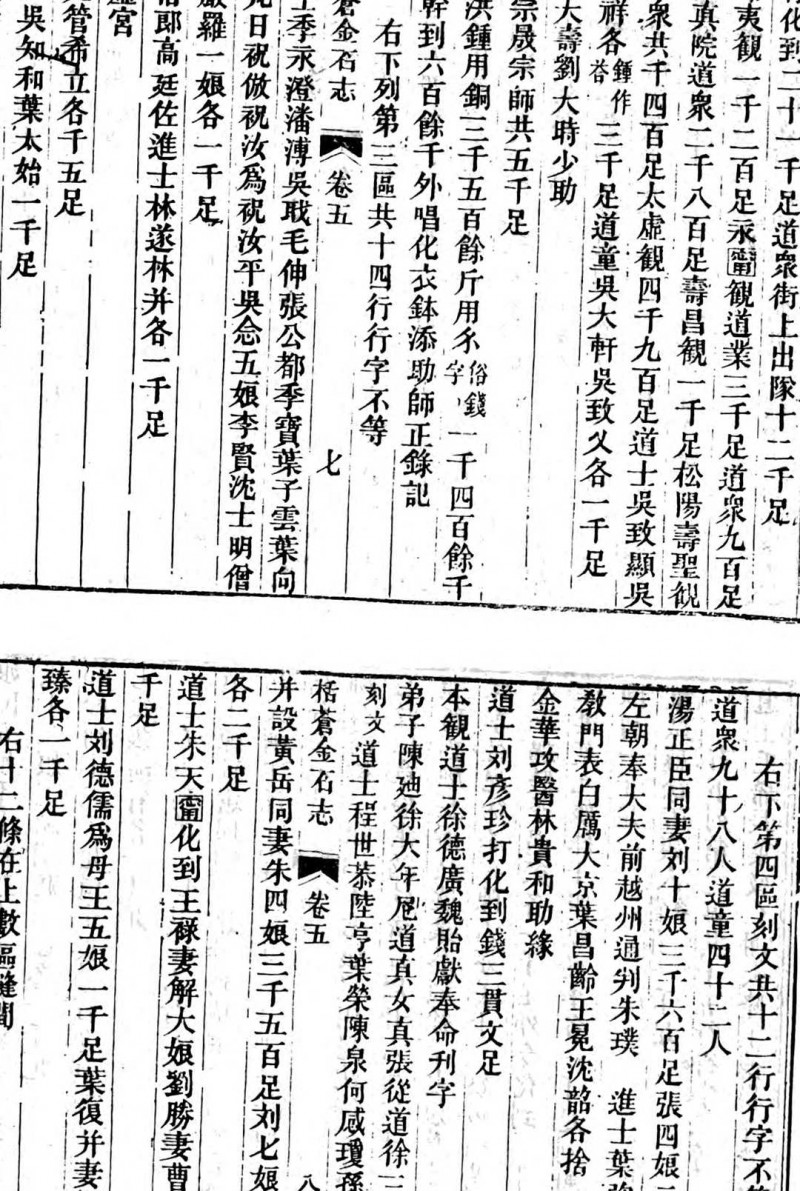 化到二十一千足道衆街上出隊十二千足
夷觀一千二百足永甯觀道業三千足道衆九百足
真院道衆二千八百足壽昌觀一千足松陽壽聖觀
衆共千四百足太虛觀四千九百足道士吳致顯吳
祥各鍾作三千足道童吳大軒吳致父各一千足
大壽劉大時少助
宗晟宗師共五千足
洪鍾用銅三千五百餘斤用尒俗錢字一千四百餘千
幹到六百餘千外唱化衣鉢添助師正錄記
右下列第三區共十四行行字不等
蒼金石志 卷五 七
季永澄潘溥吳戢毛伸張公都季寶葉子雲葉向
日祝倣祝汝爲祝汝平吳念五娘李賢沈士明僧
嚴羅一娘各一千足
郎高廷佐進士林遂林并各一千足
虛宮
管希立各千五足
吳知和葉太始一千足
右下第四區刻文共十二行行字不
道衆九十八人道童四十二人
湯正臣同妻刘十娘三千六百足張四娘
左朝奉大夫前越州通判朱璞 進士葉
教門表白厲大京葉昌齡王冕沈韶各捨
金華攻醫林貴和助緣
道士刘彥珍打化到錢三貫文足
本觀道士徐德廣魏貽獻奉命刊字
弟子陳廸徐大年尼道真女真張從道徐三
刻文道士程世菾陸亨葉榮陳泉何咸瓊孫
栝蒼金石志 卷五 八
并設黃岳同妻朱四娘三千五百足刘七娘
各二千足
道士朱天甯化到王祿妻解大娘劉勝妻曹
千足
道士刘德儒爲母王五娘一千足葉復并妻
臻各一千足
右十二條在上數區縫間